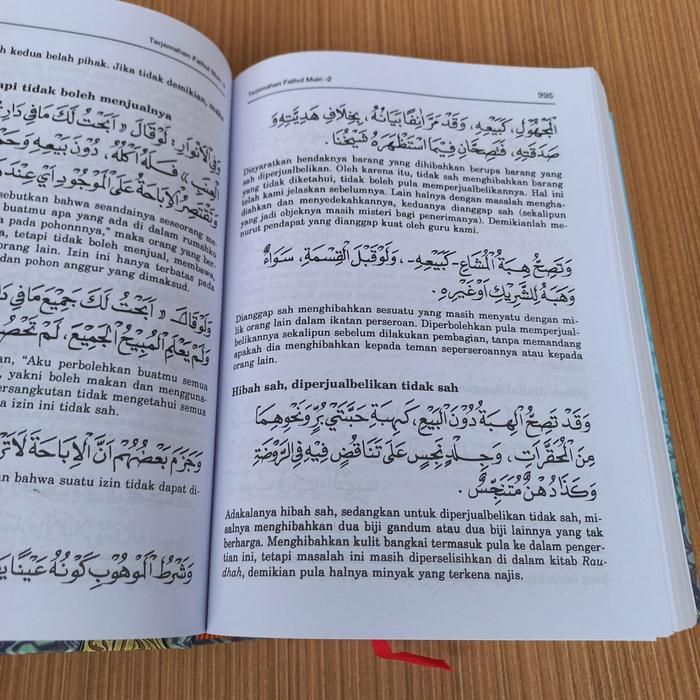 Terjemahan Fathul Muin -2
h kedua belah pihak. Jika tidak demikian, maka
api tidak boleh menjualnya
وَفِي الْأَنْوَارِ: لَوْ قَالَ « أَبَحْتُ لَكَ مَا فِي دَارِي
فَلَهُ أَكْلُهُ، دُوْنَ بَيْعِهِ وَحَمْ
وَتَقْتَصِرُ الْإِبَاحَةُ عَلَى الْمَوْجُوْدِ أَيْ عِنْدَ
sebutkan bahwa seandainya seseorang me-
buatmu apa yang ada di dalam rumahku
pada pohonnya," maka orang yang ber-
, tetapi tidak boleh menjual, membawa,
orang lain. Izin ini hanya terbatas pada
dan pohon anggur yang dimaksud.
وَلَوْ قَالَ « أَبَحْتُ لَكَ جَمِيْعَ مَا فِي دَا
وَلَمْ يَعْلَمِ الْمُبِيْحُ الْجَمِيْعَ، لَمْ تَحْصُ
an, "Aku perbolehkan buatmu semua
, yakni boleh makan dan mengguna-
ersangkutan tidak mengetahui semua
a izin ini tidak sah.
وَجَزَمَ بَعْضُهُمْ أَنَّ الْإِبَاحَةَ لَا تَرْ
an bahwa suatu izin tidak dapat di-
وَشَرْطُ الْمَوْهُوْبِ كَوْنُهُ عَيْنًا يَ
Terjemahan Fathul Muin -2
995
الْمَجْهُوْلِ، كَبَيْعِهِ، وَقَدْ مَرَّ آنِفًا بَيَانُهُ، بِخِلَافِ هَدِيَّتِهِ وَ
صَدَقَتِهِ، فَتَصِحَّانِ فِيْمَا اسْتَظْهَرَهُ شَيْخُنَا.
Disyaratkan hendaknya barang yang dihibahkan berupa barang yang
sah diperjualbelikan. Oleh karena itu, tidak sah menghibahkan barang
yang tidak diketahui, tidak boleh pula memperjualbelikannya. Hal ini
telah kami jelaskan sebelumnya. Lain halnya dengan masalah mengha-
diahkan dan menyedekahkannya, keduanya dianggap sah (sekalipun
yang jadi objeknya masih misteri bagi penerimanya). Demikianlah me-
nurut pendapat yang dianggap kuat oleh guru kami.
وَتَصِحُّ هِبَةُ الْمُشَاعِ -كَبَيْعِهِ-، وَلَوْ قَبْلَ الْقِسْمَةِ، سَوَاءٌ
وَهَبَهُ لِلشَّرِيْكِ أَوْ غَيْرِهِ.
Dianggap sah menghibahkan sesuatu yang masih menyatu dengan mi-
lik orang lain dalam ikatan perseroan. Diperbolehkan pula memperjual-
belikannya sekalipun sebelum dilakukan pembagian, tanpa memandang
apakah dia menghibahkan kepada teman seperseroannya atau kepada
orang lain.
Hibah sah, diperjualbelikan tidak sah
وَقَدْ تَصِحُّ الْهِبَةُ دُوْنَ الْبَيْعِ، كَهِبَةِ حَبَّتَيْ بُرٍّ وَنَحْوِهِمَا
مِنَ الْمُحَقَّرَاتِ، وَجِلْدٍ نَجِسٍ عَلَى تَنَاقُضٍ فِيْهِ فِي الرَّوْضَةِ
وَكَذَا دُهْنٌ مُتَنَجِّسٌ.
Adakalanya hibah sah, sedangkan untuk diperjualbelikan tidak sah, mi-
salnya menghibahkan dua biji gandum atau dua biji lainnya yang tak
berharga. Menghibahkan kulit bangkai termasuk pula ke dalam penger-
tian ini, tetapi masalah ini masih diperselisihkan di dalam kitab Rau-
dhah, demikian pula halnya minyak yang terkena najis.